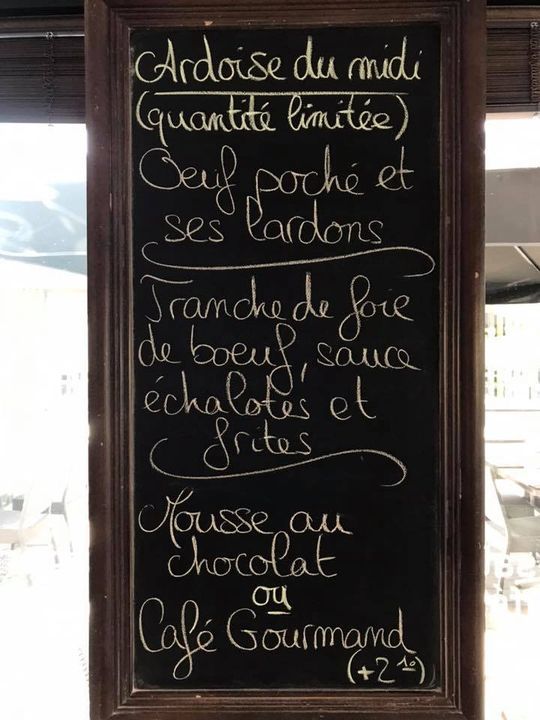 Ardoise du midi
(quantité limitée)
Oeuf poché et
ses lardons
Tranche de foie
de boeuf, sauce
échalotes et
frites
Mousse au
chocolat
ou
Café Gourmand
(+2